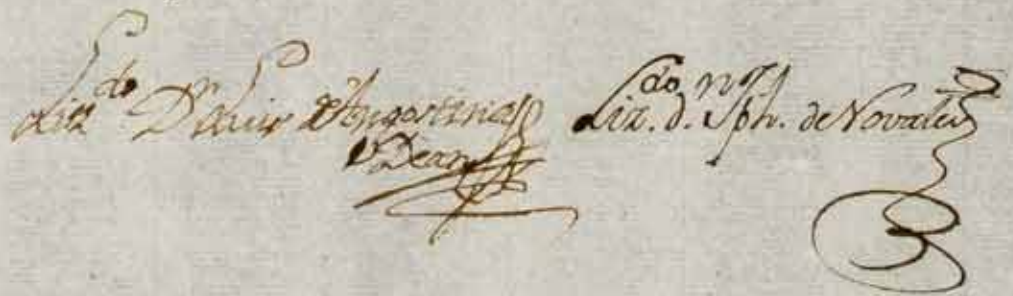 Lizdo Dn Luis de Angostina
Dean
Lizdo. dn. Jph. de Novales